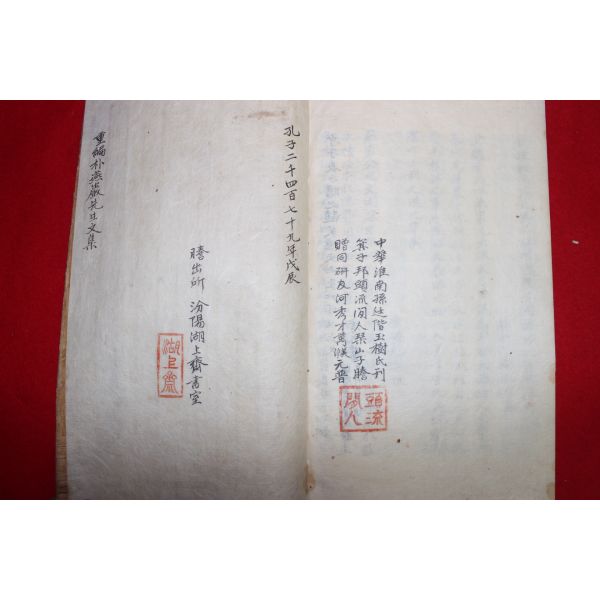 中華淮南孫廷階玉樹氏刊
箕子邦頭流閒人琴山子謄
贈同研友河秀才萬元普
頭流
閒人
孔子二千四百七十九年戊辰
謄出所 汾陽湖上齋書室
湖上齋
重編朴燕巖先生文集